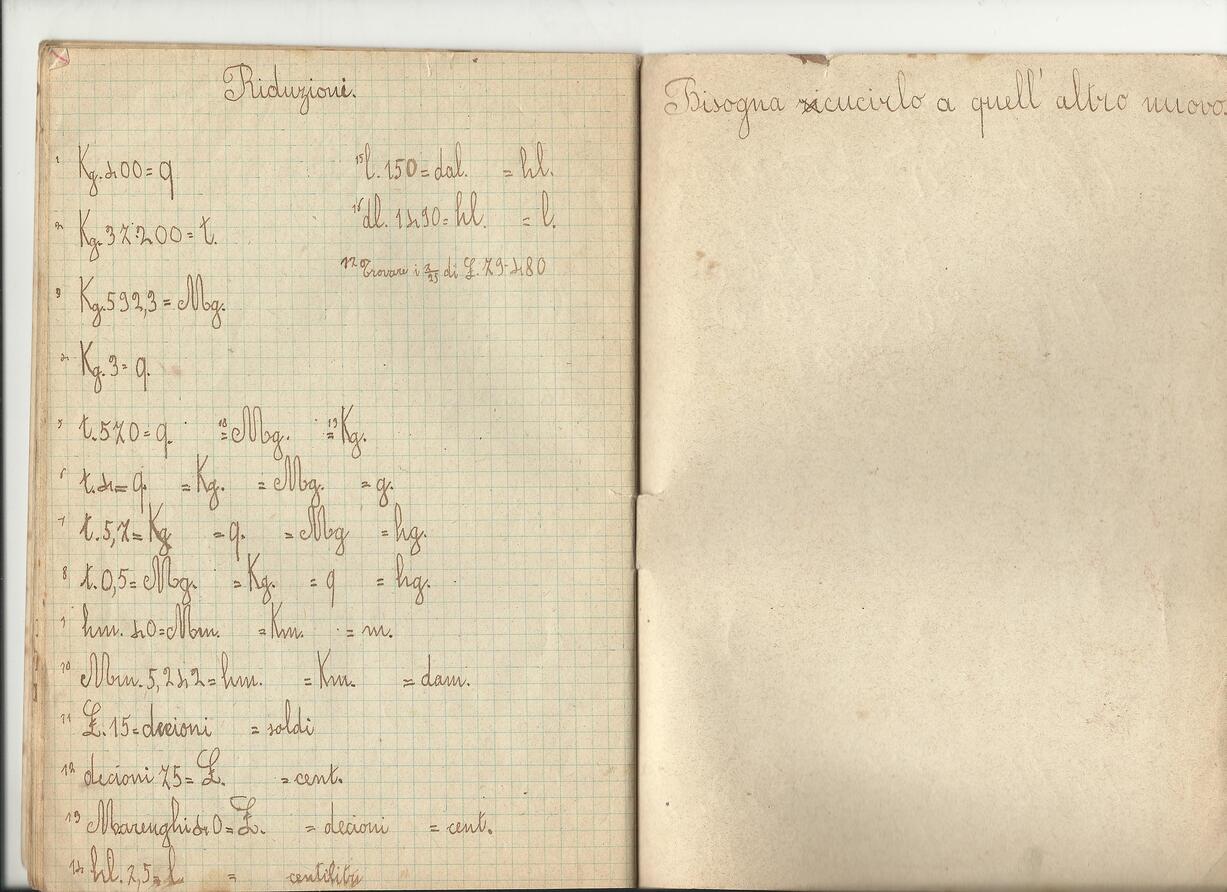 Riduzioni.
1 Kg. 400 = q
2 Kg. 37.200 = t.
3 Kg. 592,3 = Mg.
4 Kg. 3 = q.
5 t. 570 = q. = Mg. = Kg.
6 t. 4 = q. = Kg. = Mg. = g.
7 t. 5,7 = Kg = q. = Mg = hg.
8 t. 0,5 = Mg. = Kg. = q = hg.
9 hm. 40 = Mm. = Km. = m.
10 Mm. 5,242 = hm. = Km. = dam.
11 £. 15 = decioni = soldi
12 decioni 75 = £. = cent.
13 Marenghi 40 = £. = decioni = cent.
14 hl. 2,5 = l = centilitri
15 l. 150 = dal. = hl.
16 dl. 1490 = hl. = l.
17 Trovare i 2/25 di £. 79.480
Bisogna cucirlo a quell' altro nuovo.